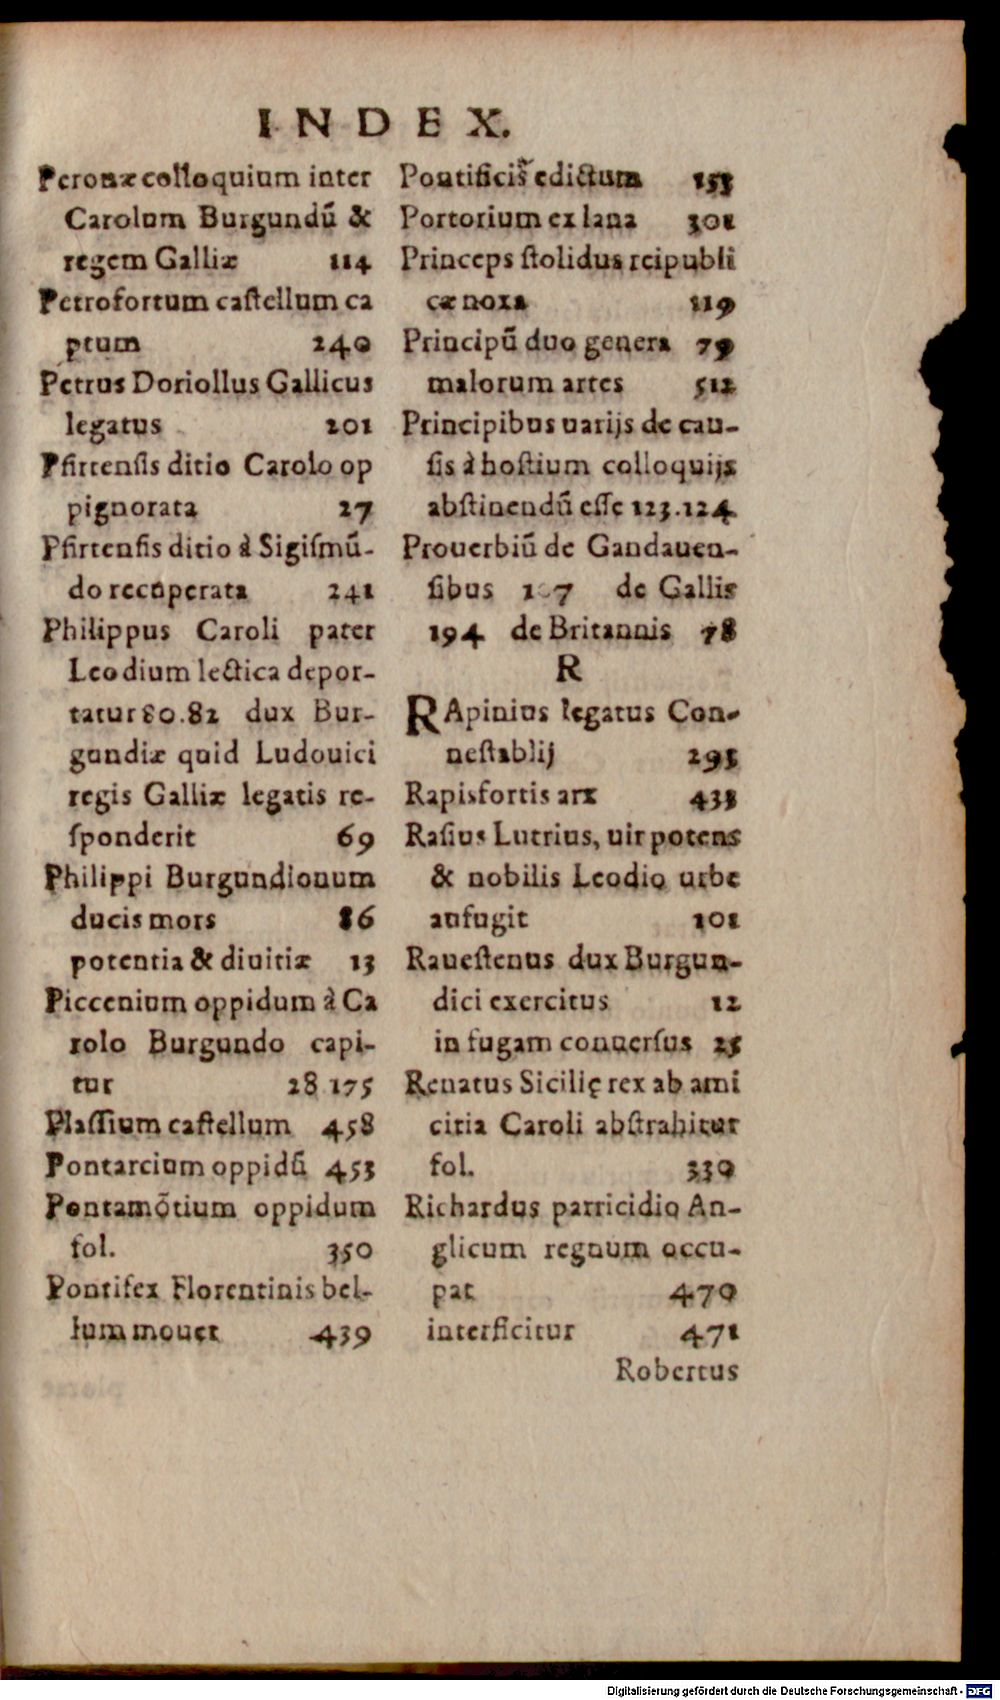 INDEX.
Peronæ colloquium inter
Carolum Burgundũ &
regem Galliæ 114
Petrofortum caſtellum ca
ptum 240
Petrus Doriollus Gallicus
legatus 201
Pfirtenſis ditio Carolo op
pignorata 27
Pfirtenſis ditio à Sigiſmũ-
do recuperata 241
Philippus Caroli pater
Leodium lectica depor-
tatur 80.82 dux Bur-
gundiæ quid Ludouici
regis Galliæ legatis re-
ſponderit 69
Philippi Burgundionum
ducis mors 86
potentia & diuitiæ 13
Piccenium oppidum à Ca
rolo Burgundo capi-
tur 28 175
Plaſſium caſtellum 458
Pontarcium oppidũ 453
Pontamõtium oppidum
fol. 350
Pontifex Florentinis bel-
lum mouet 439
Pontificis edictum 153
Portorium ex lana 301
Princeps ſtolidus reipubli
cæ noxa 119
Principũ duo genera 79
malorum artes 512
Principibus uarijs de cau-
ſis à hoſtium colloquijs
abſtinendũ eſſe 123.124
Prouerbiũ de Gandauen-
ſibus de Gallis
194 de Britannis 78
R
RApinius legatus Con-
neſtablij 293
Rapisfortis arx 433
Raſius Lutrius, uir potens
& nobilis Leodio urbe
aufugit 101
Raueſtenus dux Burgun-
dici exercitus 12
in fugam conuerſus 25
Renatus Sicilię rex ab ami
citia Caroli abſtrahitur
fol. 330
Richardus parricidio An-
glicum regnum occu-
pat 470
interficitur 471
Robertus
Digitalisierung gefördert durch die Deutsche Forschungsgemeinschaft - DFG